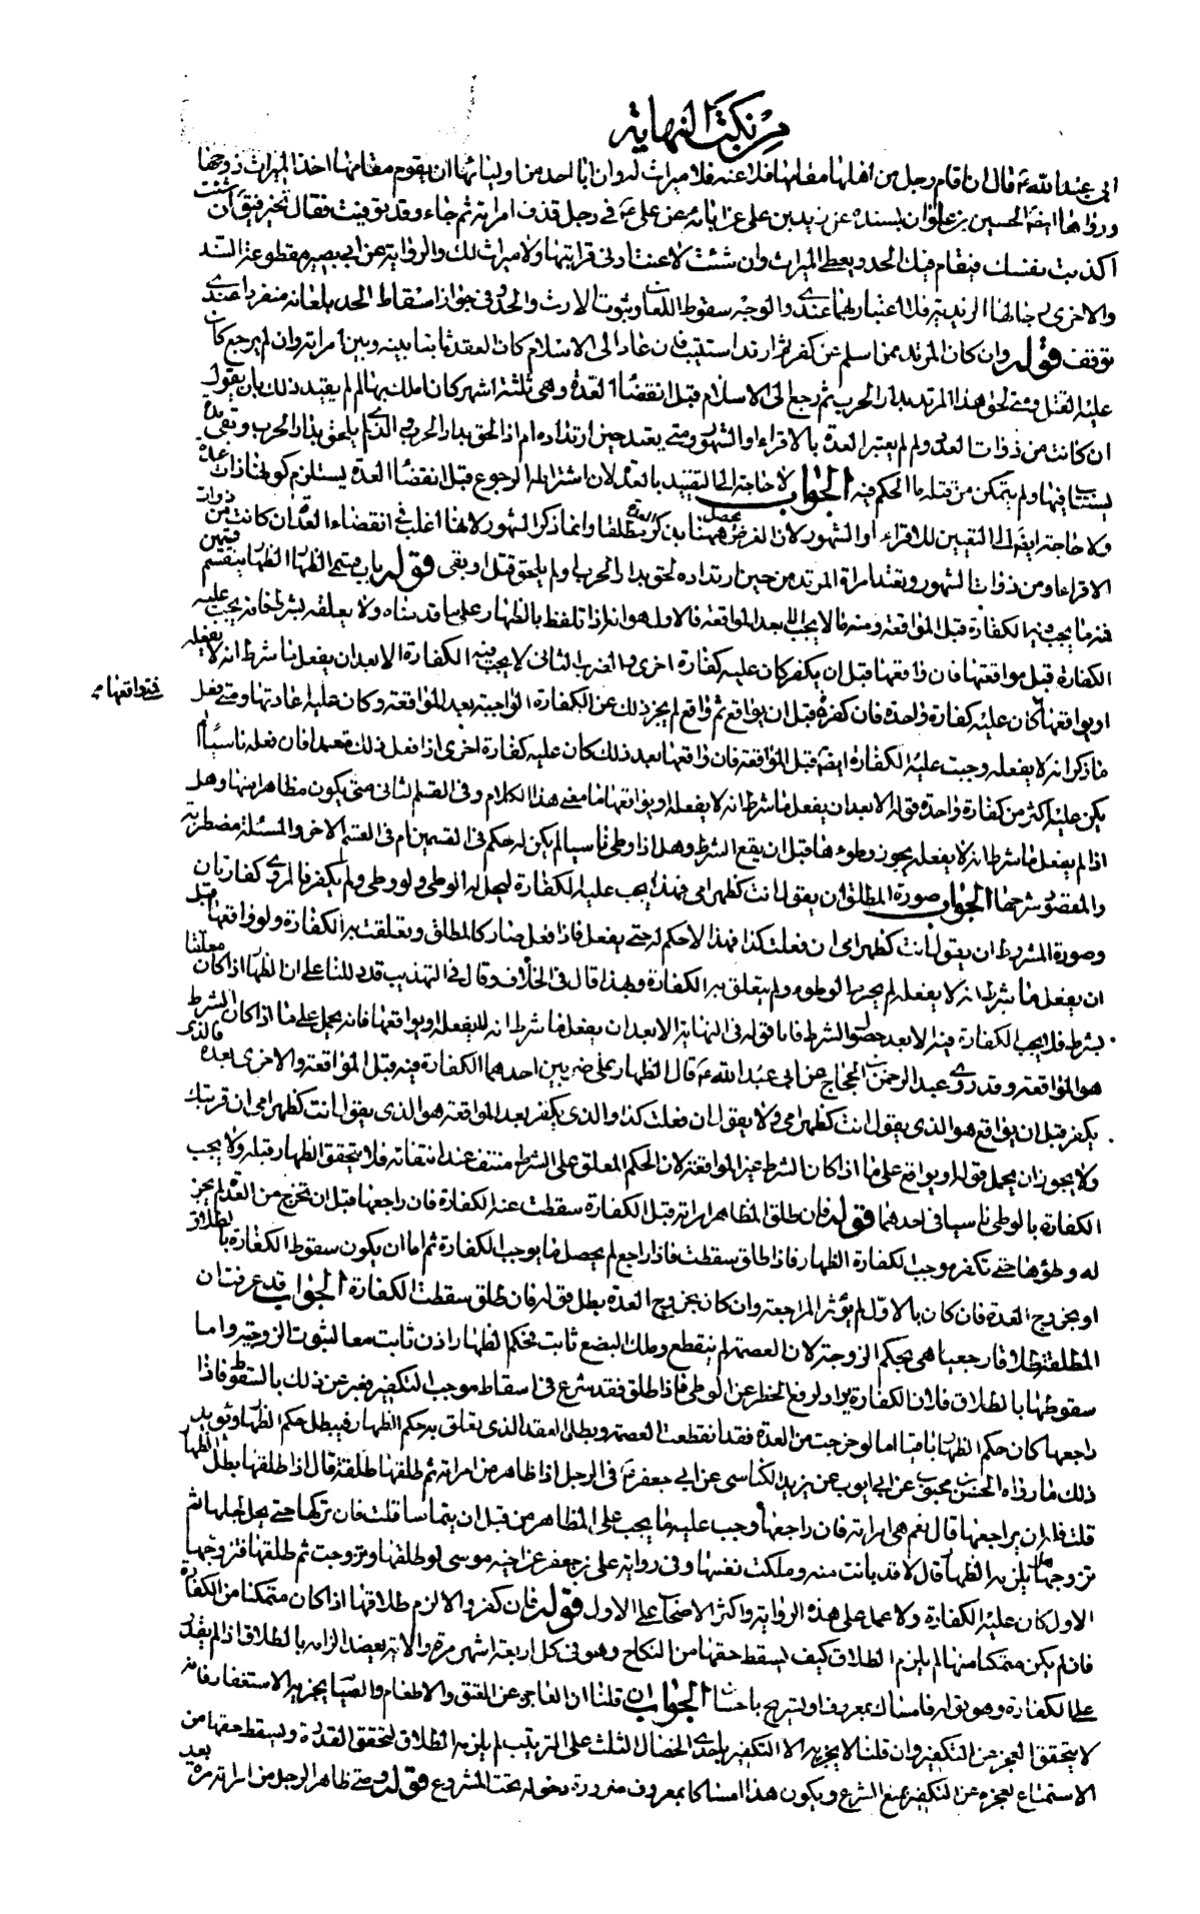 من نكت النهاية
ابي عبد الله ع قال ان قام رجل من اهلها مقامها فلاعنه فلا ميراث له وان ابا احد من اوليائها ان يقوم مقامها اخذ الميراث زوجها
ورواها ايضا الحسين بن علوان يسنده عن زيد بن علي عن ابائه عن علي ع في رجل قذف امراته ثم جاء وقد توفيت فقال تخير فيق ان شئت
اكذبت نفسك فيقام فيك الحد ويعطى الميراث وان شئت لاعنت ادنى قرابتها ولا ميراث لك والرواية عن ابي بصير مقطوعة السند
والاخرى رجالها الزيدية فلا اعتبار بهما عندي والوجه سقوط اللعان وثبوت الارث والحد وفي جواز اسقاط الحد بلعانه منفردا عندي
توقف قوله وان كان المرتد ممن اسلم عن كفر ثم ارتد استتيب فان عاد الى الاسلام كان العقد ثابتا بينه وبين امراته وان لم يرجع كان
عليه القتل ومتى لحق هذا المرتد بدار الحرب ثم رجع الى الاسلام قبل انقضاء العدة وهي ثلثة اشهر كان املك بها لم لم يقيد ذلك بان يقول
ان كانت من ذوات العدد ولم لم يعتبر العدة بالاقراء او الشهور ومتى يعتد حين ارتداده ام اذا لحق بدار الحرب والذي لم يلحق بدار الحرب وبقي مدة
يستتاب فيها ولم يتمكن من قتله ما الحكم فيه الجواب لا حاجة الى التقييد بالعدد لان اشتراطه الرجوع قبل انقضاء العدة يستلزم كونها ذات عدة
ولا حاجة ايضا الى التعيين للاقراء او الشهور لان الغرض ههنا يحصل بذكر العدة مطلقا وانما ذكر الشهور لانها اغلب في انقضاء العدة ان كانت من ذوات
الاقراء او من ذوات الشهور ويعتد امراة المرتد من حين ارتداده لحق بدار الحرب او لم يلحق قتل او بقي قوله باب متى الظهار الظهار ينقسم قسمين
فمنه ما يجب فيه الكفارة قبل المواقعة ومنه ما لا يجب الا بعد المواقعة فالاول هو انه اذا تلفظ بالظهار على ما قدمناه ولا يعلقه بشرط فانه يجب عليه
الكفارة قبل مواقعتها فان واقعها قبل ان يكفر كان عليه كفارة اخرى والضرب الثاني لا يجب فيه الكفارة الا بعد ان يفعل ما شرط انه لا يفعله
او يواقعها كان عليه كفارة واحدة فان كفر قبل ان يواقع ثم واقع لم يجز ذلك عن الكفارة الواجبة بعد المواقعة وكان عليه اعادتها ومتى فعل
فمتى واقعها
ما ذكر انه لا يفعله وجبت عليه الكفارة ايضا قبل المواقعة فان واقعها بعد ذلك كان عليه كفارة اخرى اذا فعل ذلك متعمدا فان فعله ناسيا لم
يكن عليه اكثر من كفارة واحدة قوله الا بعد ان يفعل ما شرط انه لا يفعله او يواقعها ما معنى هذا الكلام وفي القسم الثاني متى يكون مظاهرا منها وهل
اذا لم يفعل ما شرط انه لا يفعله يجوز وطوءها قبل ان يقع الشرط وهل اذا وطى ناسيا لم يكن له حكم في القسمين ام في القسم الاخر والمسئلة مضطربة
والمقصود شرحها الجواب صورة المطلق ان يقول انت كظهر امي فهذا يجب عليه الكفارة ليحل له الوطي ولو وطى ولم يكفر فالمروي كفارتان
وصورة المشروط ان يقول انت كظهر امي ان فعلت كذا فهذا لا حكم له حتى يفعل فاذا فعل صار كالمطلق وتعلقت به الكفارة ولو واقعها قبل
ان يفعل ما شرط انه لا يفعله لم يحرم الوطوء ولم يتعلق به الكفارة وبهذا قال في الخلاف وقال في التهذيب قد دللنا على ان الظهار اذا كان معلقا
بشرط فلا يجب الكفارة فيه الا بعد حصول الشرط فاما قوله في النهاية الا بعد ان يفعل ما شرط انه لا يفعله او يواقعها فانه يحمل على ما اذا كان الشرط
هو المواقعة وقد روى عبد الرحمن بن الحجاج عن ابي عبد الله ع قال الظهار على ضربين احدهما الكفارة فيه قبل المواقعة والاخرى بعده فالذي
يكفر قبل ان يواقع هو الذي يقول انت كظهر امي ولا يقول ان فعلت كذا والذي يكفر بعد المواقعة هو الذي يقول انت كظهر امي ان قربتك
ولا يجوز ان يحمل قوله او يواقع على ما اذا كان الشرط غير المواقعة لان الحكم المعلق على الشرط منتف عند انتفائه فلا يتحقق الظهار قبله ولا يجب
الكفارة بالوطي ناسيا في احدهما قوله فان طلق المظاهر امراته قبل الكفارة سقطت عنه الكفارة فان راجعها قبل ان تخرج من العدة لم يجز
له وطوءها حتى تكفر موجب الكفارة الظهار فاذا طلق سقطت فاذا راجع لم يحصل ما يوجب الكفارة ثم اما ان يكون سقوط الكفارة بالطلاق
او بخروج العدة فان كان بالاول لم يؤثر المراجعة وان كان بخروج العدة بطل قوله فان طلق سقطت الكفارة الجواب قد عرفت ان
المطلقة طلاقا رجعيا هي بحكم الزوجة لان العصمة لم ينقطع وملك البضع ثابت فحكم الظهار اذن ثابت معا لثبوت الزوجية واما
سقوطها بالطلاق فلان الكفارة يراد لرفع الحظر عن الوطي فاذا طلق فقد شرع في اسقاط موجب التكفير فعبر عن ذلك بالسقوط فاذا
راجعها كان حكم الظهار باقيا اما لو خرجت من العدة فقد انقطعت العصمة وبطل العقد الذي تعلق به حكم الظهار فيبطل حكم الظهار ويؤيد
ذلك ما رواه الحسن بن محبوب عن ابي ايوب عن يزيد الكناسي عن ابي جعفر ع في الرجل اذا ظاهر من امراته ثم طلقها طلقة قال اذا طلقها بطل الظهار
قلت فله ان يراجعها قال نعم هي امراته فان راجعها وجب عليه ما يجب على المظاهر من قبل ان يتماسا قلت فان تركها حتى يحل اجلها ثم
تزوجها هل يلزمه الظهار قال لا قد بانت منه وملكت نفسها وفي رواية علي بن جعفر عن اخيه موسى لو طلقها وتزوجت ثم طلقها فتزوجها
الاول كان عليه الكفارة ولا عمل على هذه الرواية واكثر الاصحاب على الاول قوله فان كفر والا الزم طلاقها اذا كان متمكنا من الكفارة
فان لم يكن متمكنا منها لم يلزم الطلاق كيف يسقط حقها من النكاح وهو في كل اربعة اشهر مرة والاية يعضد الزامه بالطلاق اذا لم يقدر
على الكفارة وهو قوله فامساك بمعروف او تسريح باحسان الجواب ان قلنا ان العاجز عن العتق والاطعام والصيام يجزيه الاستغفار فانه
لا يتحقق العجز عن التكفير وان قلنا لا يجزيه الا التكفير باحدى الخصال الثلث على الترتيب لم يلزمه الطلاق لتحقق القدرة ويسقط حقها من
الاستمتاع لعجزه عن التكفير بمنع الشرع ويكون هذا امساكا بمعروف ضرورة دخوله تحت المشروع قوله ومتى ظاهر الرجل من امراته مرة بعد